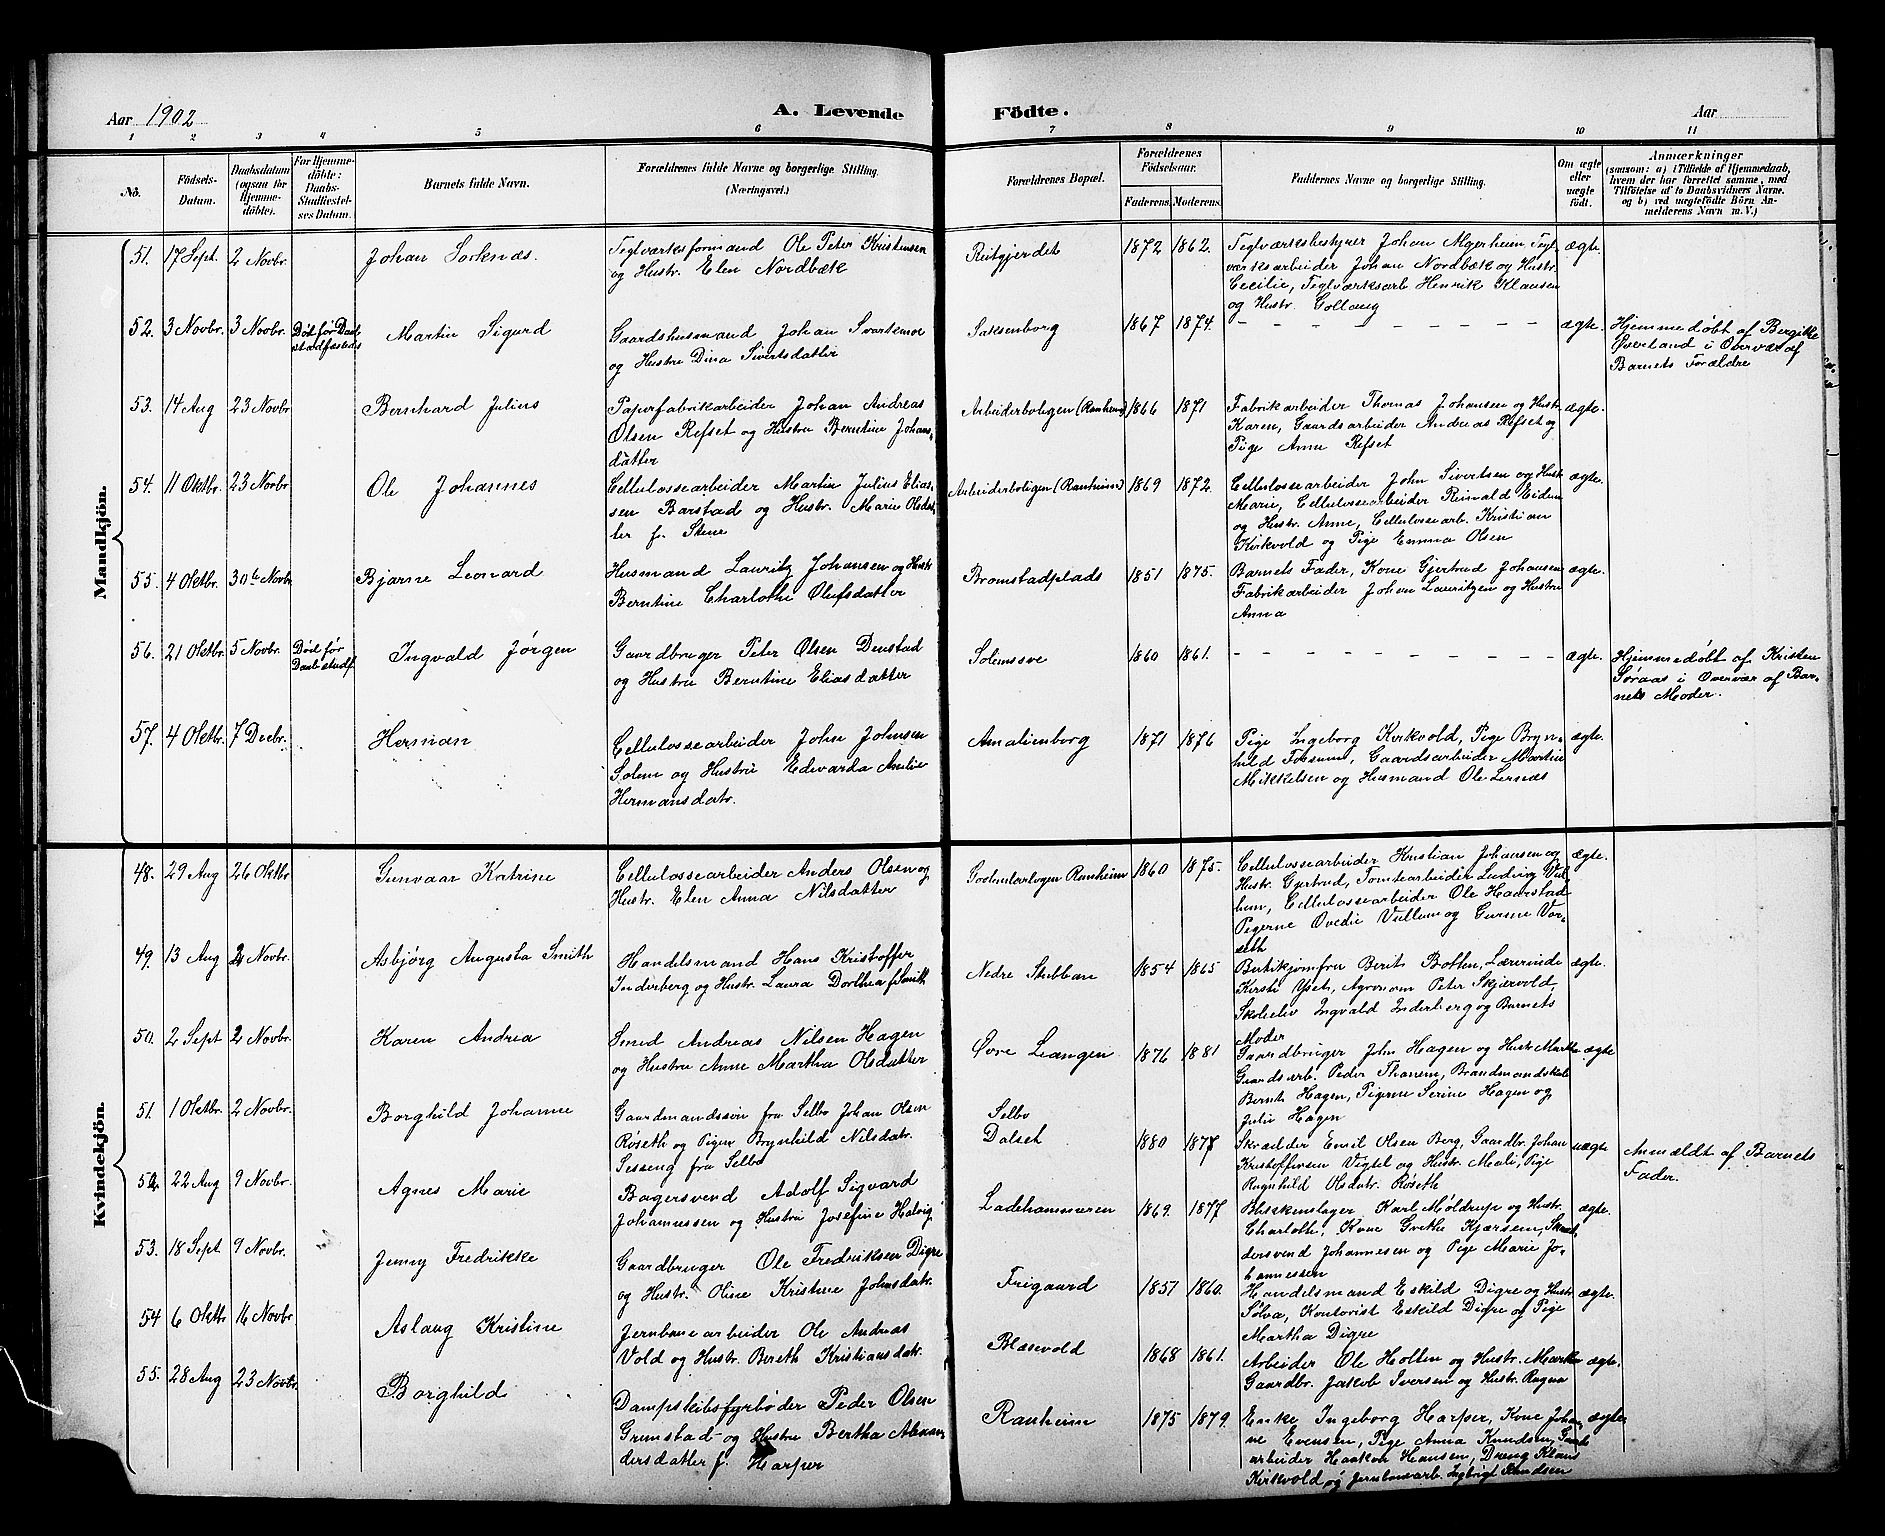 Aar 1902
A. Levende Födte.
Aar
1 2 3 4 5 6 7 8 9 10 11
No.
Födsels-Datum.
Daabsdatum (ogsaa for Hjemme-döbte).
For Hjemme-döbte: Daabs-Stadfæstel-ses Datum.
Barnets fulde Navn.
Forældrenes fulde Navne og borgerlige Stilling. (Næringsvei.)
Forældrenes Bopæl.
Forældrenes Födselsaar.
Faderens. Moderens.
Faddernes Navne og borgerlige Stilling.
Om ægte eller uægte födt.
Anmærkninger
(saasom: a) i Tilfælde af Hjemmedaab, hvem der har forrettet samme, med Tilföielse af to Daabsvidners Navne. og b) ved uægtefödte Börn Anmelderens Navn m. V.)
Mandkjön.
51. 17 Sept. 2 Novbr. Johan Sorknæs.
Teglværksformand Ole Peter Kristensen
og Hustr. Elen Nordbæk
Reitgjerdet 1872 1862.
Teglværksbestyrer Johan Mjerheim, Tegl-
værksarbeider Johan Nordbæk og Hustr.
Cecilie, Teglværksarb Henrik Klausen
og Hustr. Gollaug
ægte.
52. 3 Novbr. 3 Novbr. Død før Daab
stadfæstels
Martin Sigurd
Gaardshusmand Johan Svartemoe
og Hustru Dina Sivertsdatter
Saksenborg 1867 1874.
ægte.
Hjemmedøbt af Bergitte
Øverland i Overvær af
Barnets Forældre
53. 14 Aug 23 Novbr Bernhard Julius
Papirfabrikarbeider Johan Andreas
Olsen Refset og Hustru Berntine Johans-
datter
Arbeiderboligen (Ranheim) 1866 1871
Fabrikarbeider Thomas Johansen og Hustr.
Karen, Gaardsarbeider Andreas Refset og
Pige Anne Refset
ægte.
54. 11 Oktbr. 23 Novbr Ole Johannes
Cellulossearbeider Martin Julius Elias-
sen Barstad og Hustr. Marie Olsdat-
ter f. Stene
Arbeiderboligen (Ranheim) 1869 1872.
Cellulossearbeider John Sivertsen og Hustr
Marie, Cellulosearbeider Reinald Eidem
og Hustr. Anne, Cellulossearb. Kristian
Kirkvold og Pige Emma Olsen
ægte.
55. 4 Oktbr. 30te Novbr Bjarne Leonard
Husmand Lauritz Johansen og Hustr
Berntine Charlotte Olufsdatter
Bromstadplads 1851 1875.
Barnets Fader, Kone Gjertrud Johansen
Fabrikarbeider Johan Lauritzen og Hustru
Anna
ægte.
56. 21 Oktbr 5 Novbr. Død før
Daabstadf.
Ingvald Jørgen
Gaardbruger Peter Olsen Denstad
og Hustru Berntine Eliasdatter
Solemsve 1860 1861.
ægte.
Hjemmedøbt af Kristen
Søraas i Overvær af Bar-
nets Moder.
57. 4 Oktbr. 7 Decbr. Herman
Cellulossearbeider John Johnsen
Solem og Hustru Edvarda Amalie
Hermansdatr.
Amalienborg 1871 1876
Pige Ingeborg Kirkvold, Pige Bryn-
hild Fossum, Gaardsarbeider Martin
Mikkelsen og Husmand Ole Lernæs
ægte.
Kvindekjön.
48. 29 Aug 26 Oktbr Gunvaar Katrine
Cellulossearbeider Anders Olsen og
Hustr. Elen Anna Nilsdatter
Ranheim 1860 1875.
Cellulossearbeider Kristian Johansen og
Hustr. Gjertrud, Tomtearbeider Ludvig Vul-
lum, Cellulossearbeider Ole Haarstad
Pigerne Ovedie Vullum og Gurine Vor-
seth
ægte.
49. 13 Aug 2 Novbr. Asbjørg Augusta Smith
Handelsmand Hans Kristoffer
Inderberg og Hustr. Laura Dorthea f. Smith
Nedre Stubban 1854 1865
Butikjomfru Berit Botten, Lærerinde
Kirsti Yset, Agronom Peter Skjærvold,
Skoleelev Ingvald Inderberg og Barnets
Moder
ægte.
50. 2 Sept 2 Novbr. Karen Andrea
Smed Andreas Nilsen Hagen
og Hustru Anne Martha Olsdatter
Øvre Leangen 1876 1881
Gaardbruger John Hagen og Hustr Martha
Gaardsarb. Peder Thanem, Brandmandskab
Bernt Hagen, Pigerne Serine Hagen og
Julie Hagen
ægte
51. 1 Oktbr. 2 Novbr. Borghild Johanne
Gaardmandssøn fra Selbo Johan Olsen
Røseth og Pigen Brynhild Nilsdatr.
Sesseng fra Selbo
Selbo
Dalset 1880 1877
Skrædder Emil Olsen Berg, Gaardbr. Johan
Kristoffersen Vigtel og Hustr. Meali, Pige
Ragnhild Olsdatr. Røseth
uægte
Anmældt af Barnets
Fader.
52. 22 Aug 9 Novbr. Agnes Marie
Bagersvend Adolf Sigvard
Johannessen og Hustru Josefine Hatvig
Ladehammeren 1869. 1877
Blikkenslager Karl Møldrup og Hustr.
Charlotte, Kone Grethe Kjærsem, Skræd-
dersvend Johannesen og Pige Marie Jo-
hannessen
ægte.
53. 18 Sept. 9 Novbr. Jenny Fredrikke
Gaardbruger Ole Fredriksen Digre
og Hustr. Oline Kristine Johnsdatr.
Frigaard 1857 1860.
Handelsmand Eskild Digre og Hustr
Sølva, Kontorist Eskild Digre og Pige
Martha Digre
ægte.
54 6 Oktbr 16 Novbr Aslaug Kristine
Jernbanearbeider Ole Andreas
Vold og Hustr. Bereth Kristiansdatr.
Blæsevold 1868 1861.
Arbeider Ole Holten og Hustr. Martha
Gaardbr. Jakob Iversen og Hustr. Ragna
ægte.
55. 28 Aug 23 Novbr. Borghild
Dampskibsfyrbøder Peder Olsen
Grimstad og Hustru Bertha Alexan-
dersdatter f. Harper
Ranheim 1875 1879.
Enke Ingeborg Harper, Kone Johan-
ne Evensen, Pige Anna Knudsen,
arbeider Haakon Hansen, Dreng Klaus
Kirkvold og Jernbanearb. Ingbrigt Knudsen
ægte